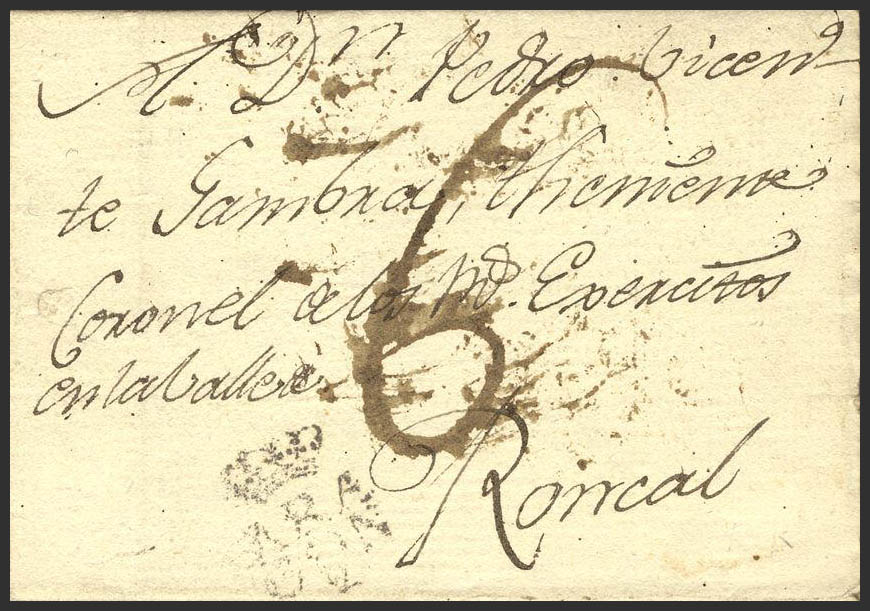 A Dn Pedro Vicen
te Gambra, theniente
Coronel de los Rs. Exercitos
en la Valle de
Roncal
6